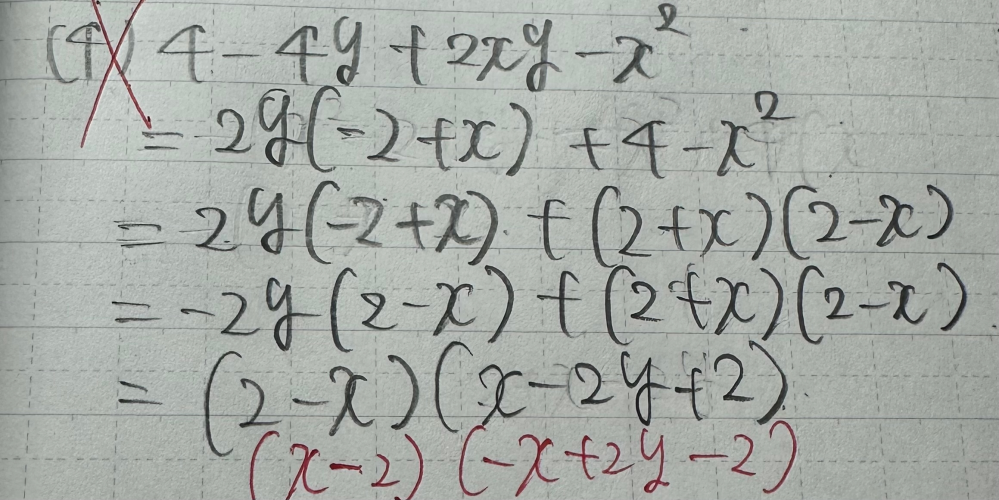 (4) 4-4y+2xy-x²
=2y(-2+x)+4-x²
=2y(-2+x)+(2+x)(2-x)
=-2y(2-x)+(2+x)(2-x)
=(2-x)(x-2y+2)
(x-2)(-x+2y-2)